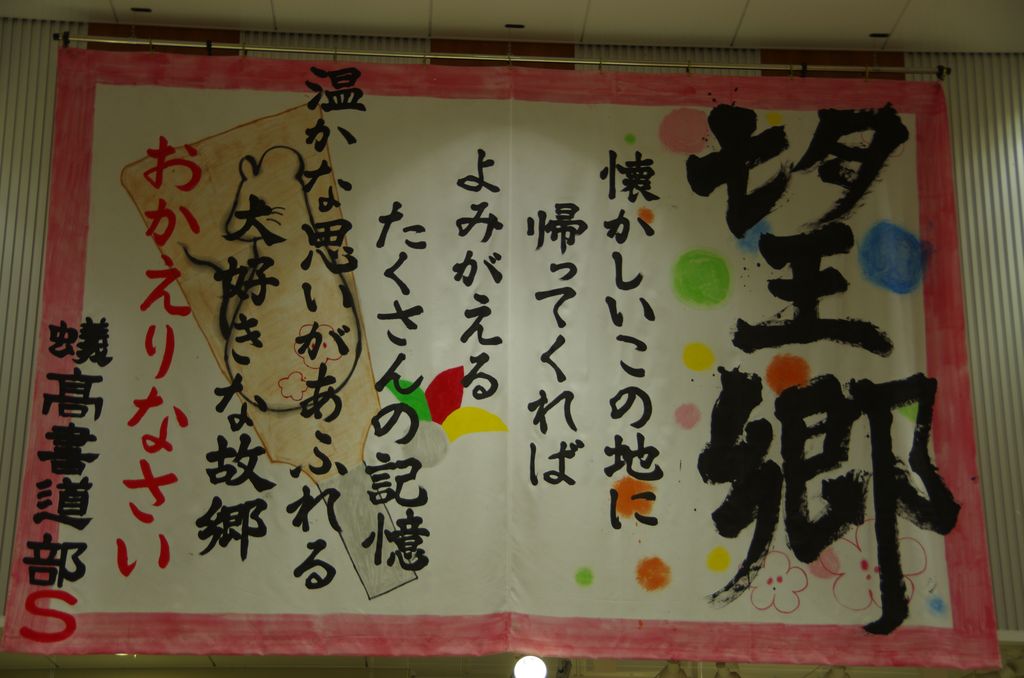 望郷
懐かしいこの地に
帰ってくれば
よみがえる
たくさんの記憶
温かな思いがあふれる
大好きな故郷
おかえりなさい
蟻高書道部S